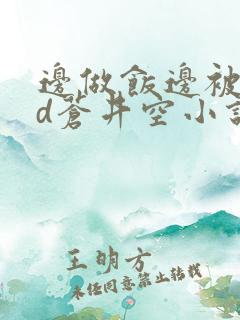 邊做飯邊被
d蒼井空小說
王明方
未經同意禁止轉載